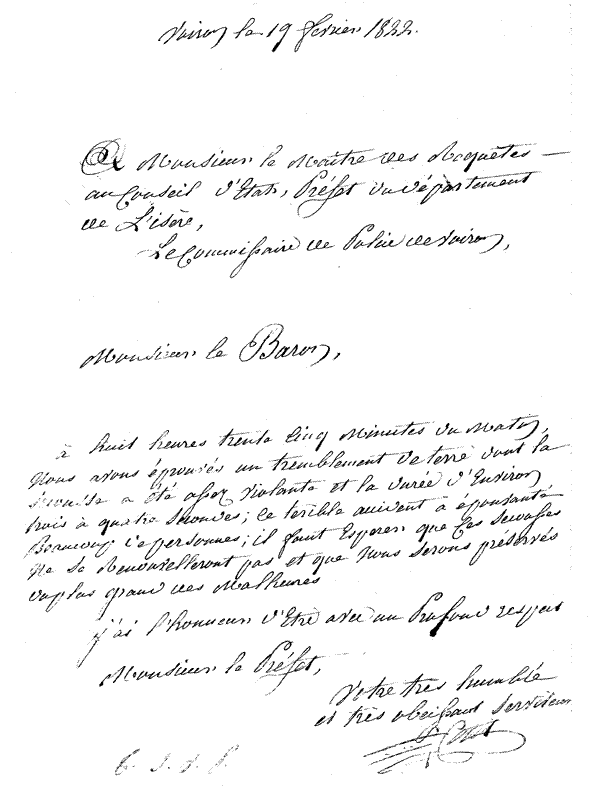 Voiron le 19 fevrier 1822.
A Monsieur le Maitre des Requêtes —
au Conseil d'Etat, Préfet du département
de L'isère,
Le Commissaire de Police de Voiron,
Monsieur le Baron,
à huit heures trente Cinq Minutes du Matin,
Nous avons éprouvés un tremblement de terre dont la
secousse a été assez violante et la durée d'Environ
trois à quatre secondes; ce terible accident a épouvanté
Beaucoup de personnes; il faut Esperer que Ces secousses
Ne se Renouvelleront pas et que Nous serons préservés
du plus grand des Malheures
j'ai l'honneur d'Etre avec un Profond respect
Monsieur le Préfet,
Votre très humble
et très obeissant serviteur